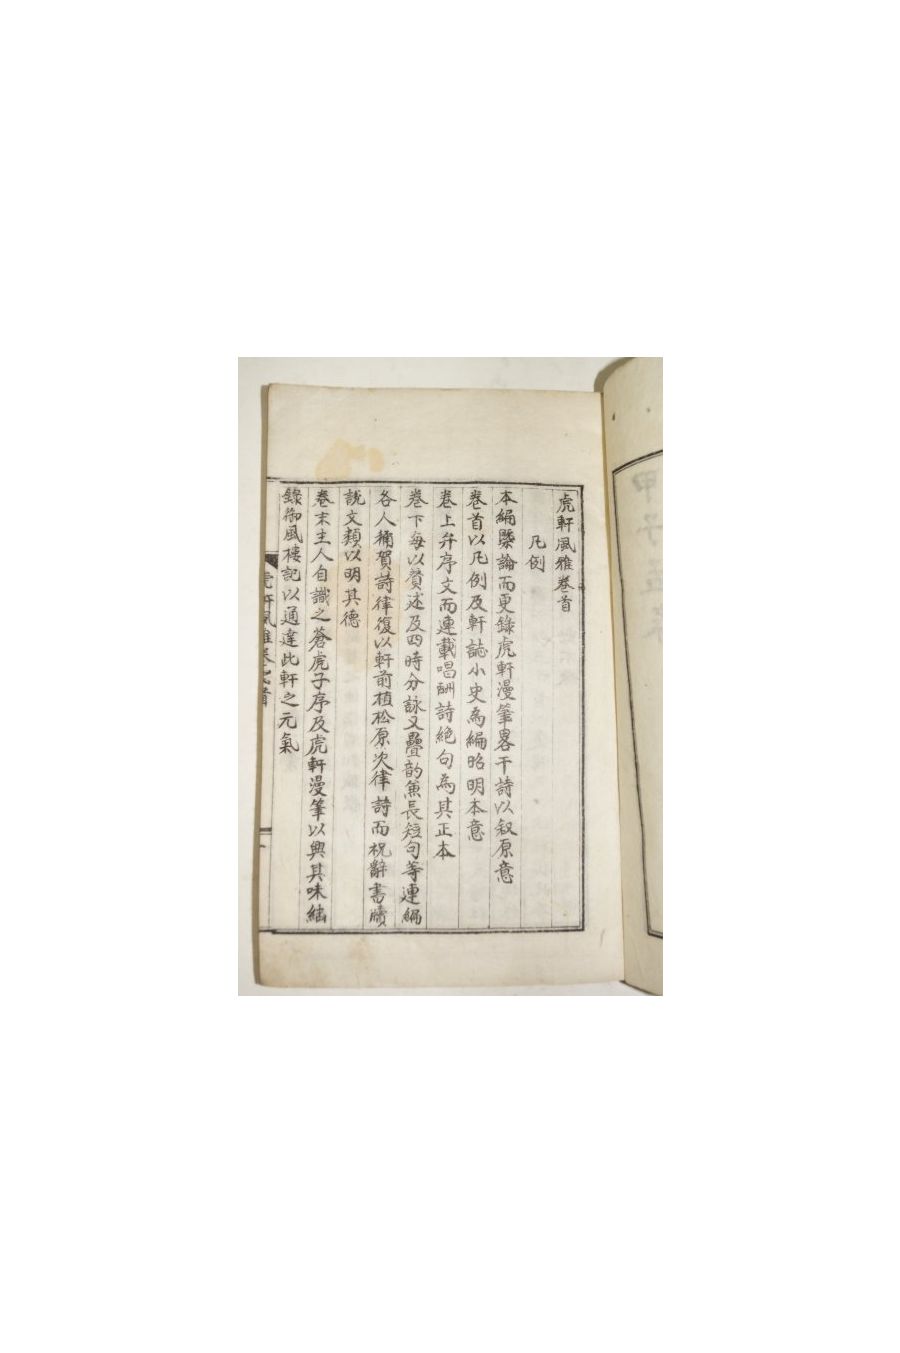 虎軒風雅卷首
凡例
本編槩論而更錄虎軒漫筆畧干詩以叙原意
卷首以凡例及軒誌小史為編昭明本意
卷上弁序文而連載唱酬詩絕句為其正本
卷下每以贊述及四時分詠又疊韵兼長短句等連編
各人稱賀詩律復以軒前植松原次律詩而祝辭書牘
說文類以明其德
卷末主人自識之蒼虎子序及虎軒漫筆以興其味紬
錄御風樓記以通達此軒之元氣
虎軒風雅卷之首